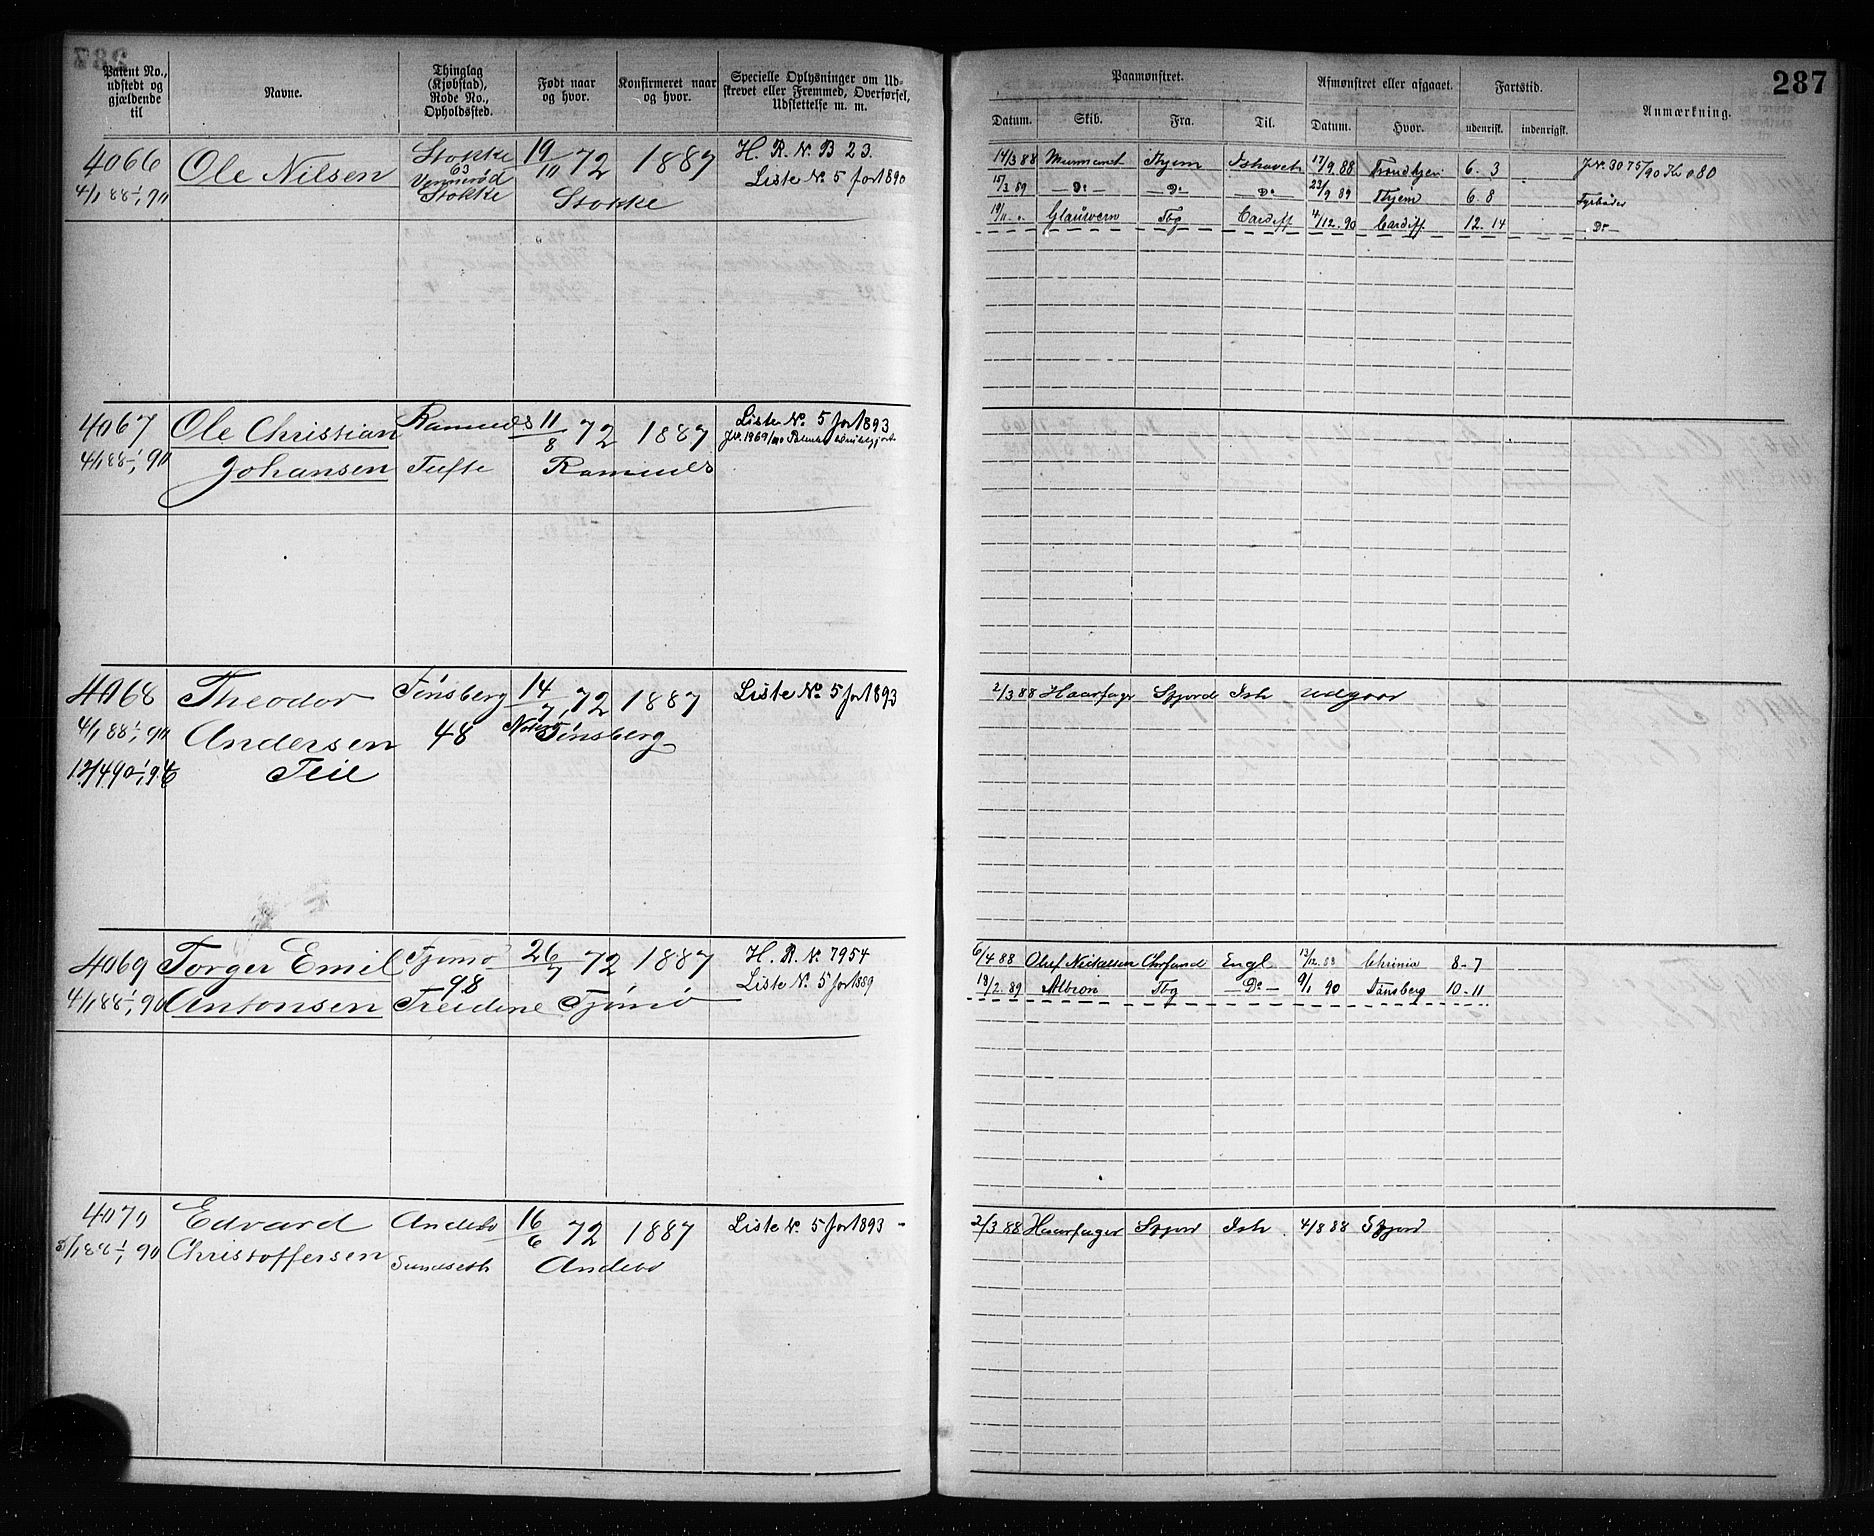 287
Patent No., udstedt og gjældende til
Navne.
Thinglag (Kjøbstad), Rode No., Opholdssted.
Født naar og hvor.
Konfirmeret naar og hvor.
Specielle Oplysninger om Udskrevet eller Fremmed, Overførsel, Udslettelse m. m.
Paamønstret.
Afmønstret eller afgaaet.
Fartstid.
Anmærkning.
Datum. Skib. Fra. Til. Datum. Hvor. udenrisk. indenrigsk.
4066 Ole Nilsen Stokke 19/10 72 1887 H. R. N. B 23.
4/1 88 1/1 90 63 Vennerød Stokke Stokke Liste No. 5 for 1890
14/3 88 Murmand Thjem Ishavet 17/9 88 Trondhjem 6 - 3
15/3 89 - Do - - Do - - Do - 23/9 89 Thjem 6 - 8 Fyrbøder
19/11 - " Glauwern Tbg Cardiff 4/12 90 Cardiff 12 - 14 - Do -
4067 Ole Christian Ramnes 11/8 72 1887 Liste No. 5 for 1893
4/1 88 1/1 90 Johansen Tufte Ramnes
4068 Theodor Tønsberg 14/7 72 1887 Liste No. 5 for 1893
4/1 88 1/1 90 Andersen 48 Tønsberg
12/4 90 1/1 94 Teie
2/3 88 Haarfager Sfjord Ish udgaar
4069 Torger Emil Tjømø 26/7 72 1887 H. R. N. 7954
4/1 88 1/1 90 Antonsen 98 Treidene Tjømø Liste No. 5 for 1889
6/4 88 Oluf Nickelsen Chrsand Engl 13/12 88 Chrinia 8 - 7
13/2 89 Albion Tbg - Do - 9/1 90 Tønsberg 10 - 11
4070 Edvard Andebo 16/6 72 1887 Liste No. 5 for 1893 -
5/1 88 1/1 90 Christoffersen Sundseth Andebo
2/3 88 Haarfager Sfjord Ish 4/8 88 Sfjord